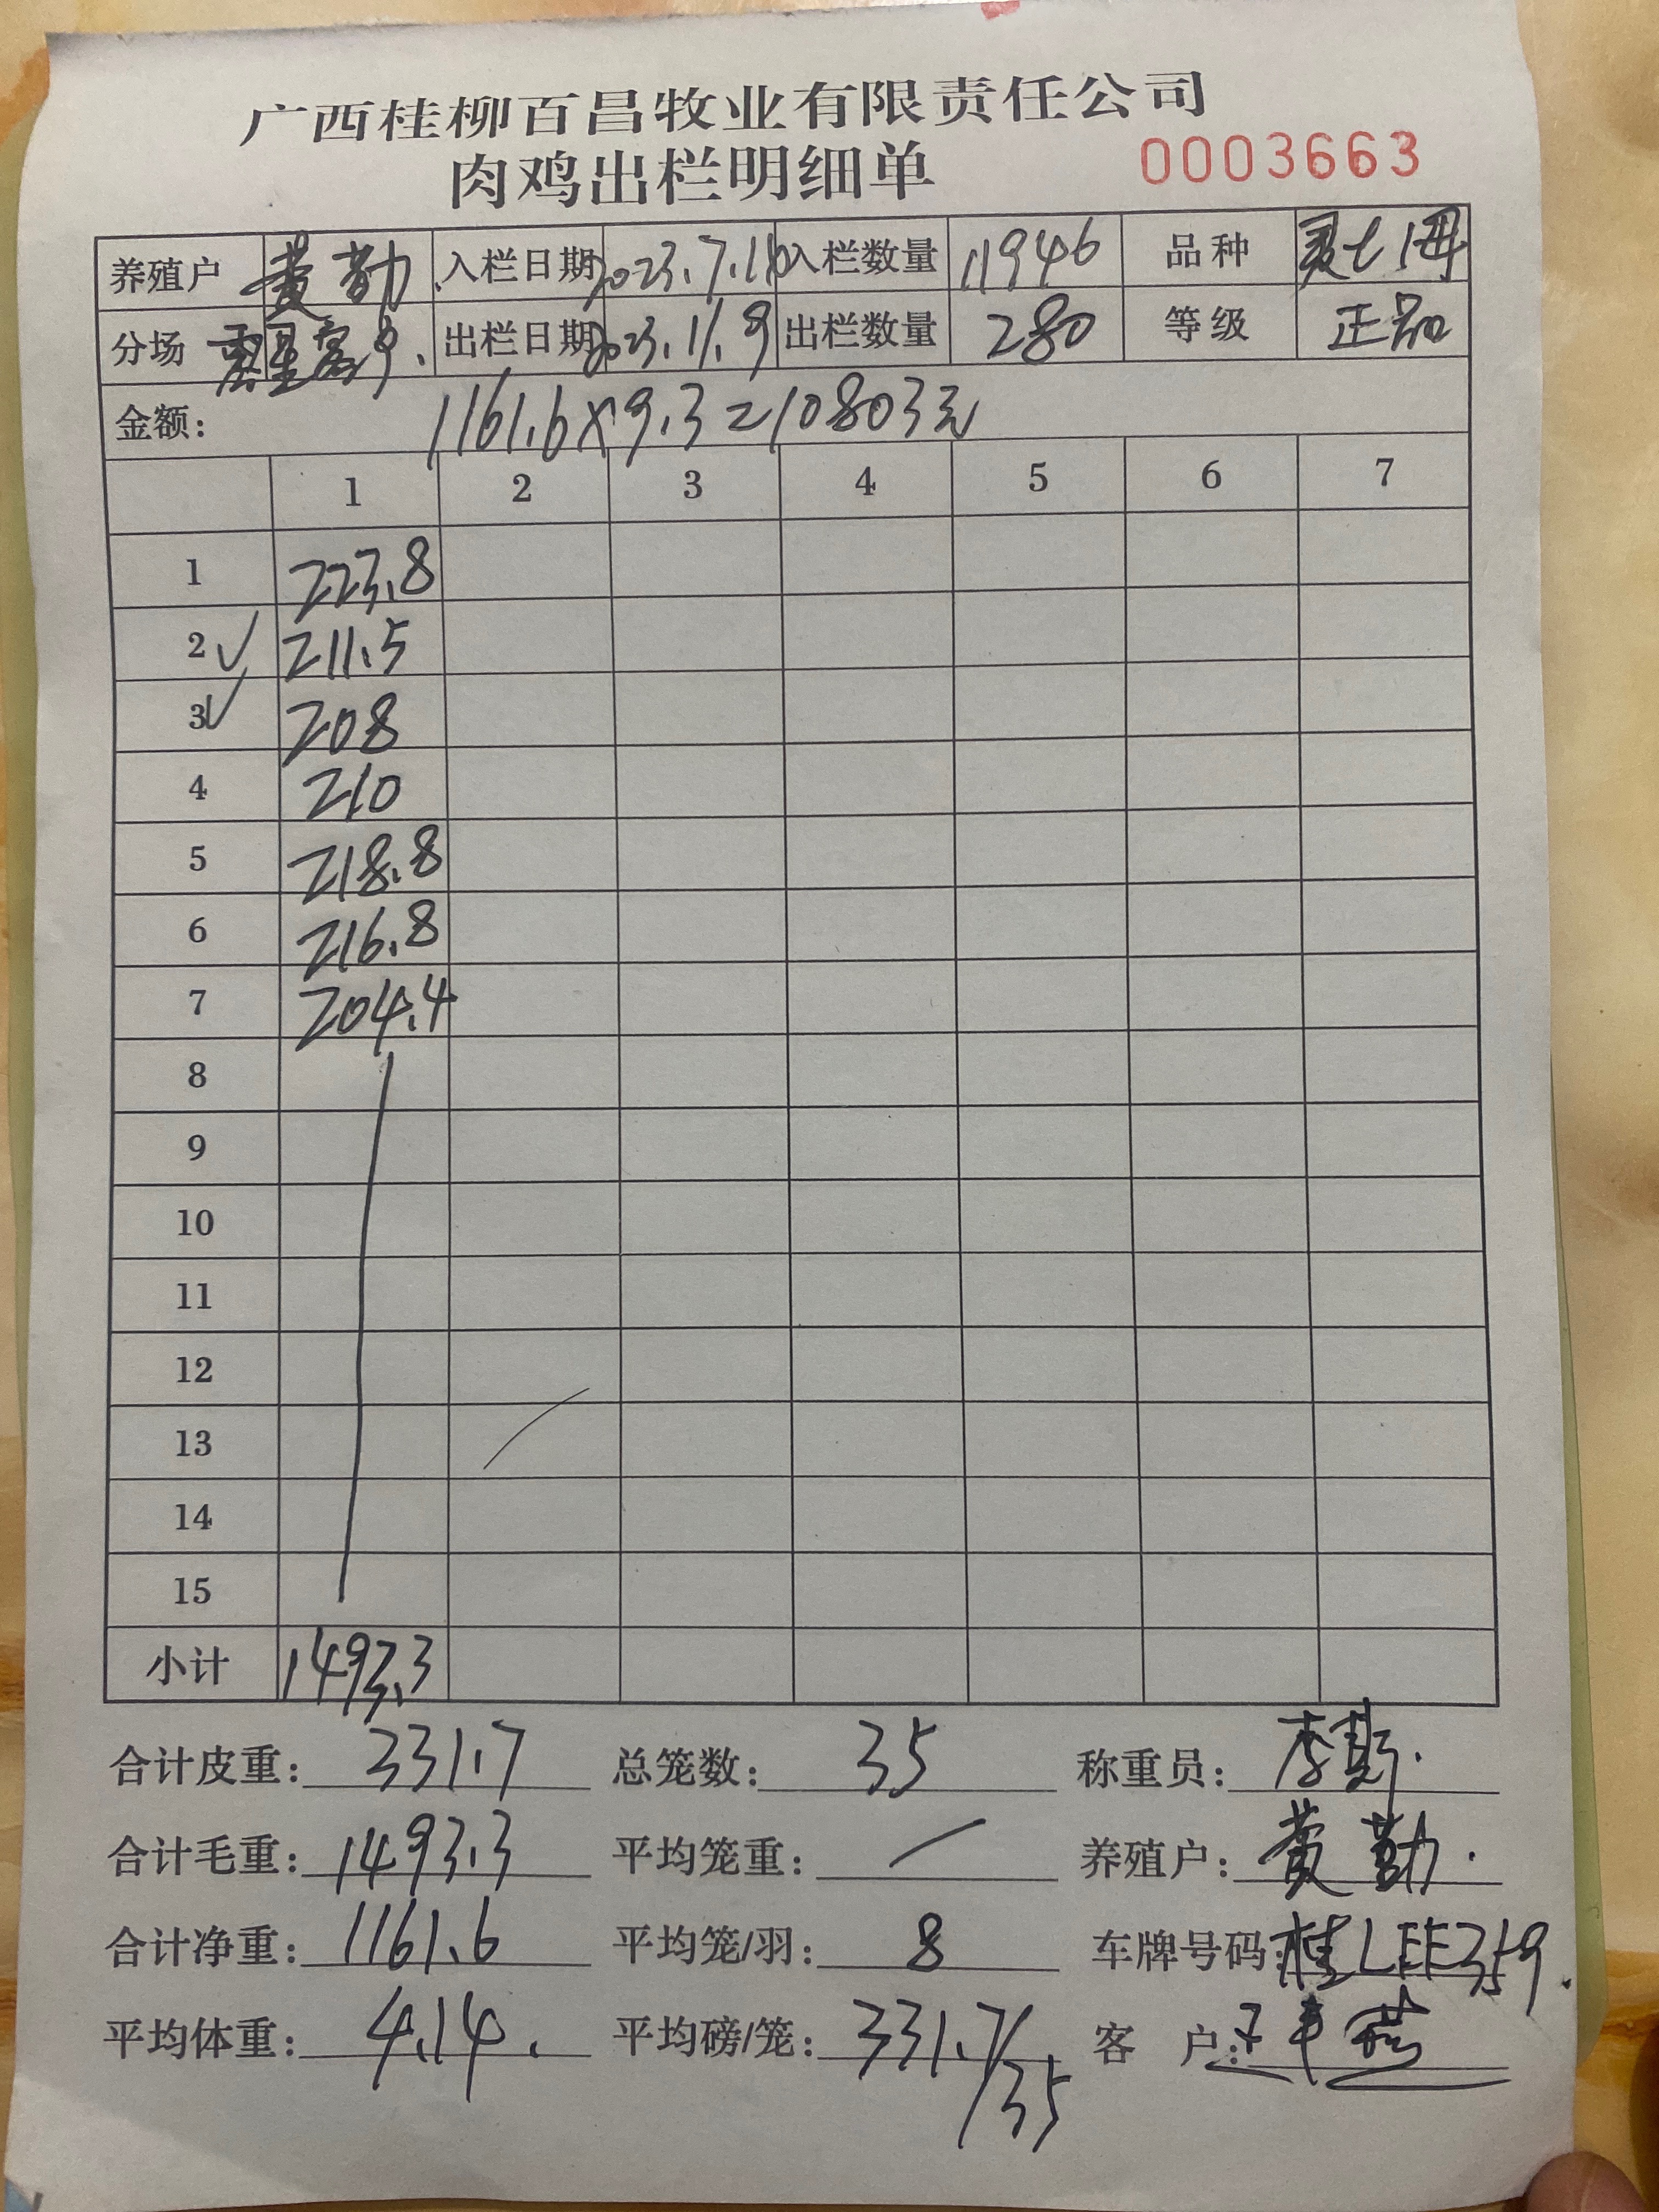 广西桂柳百昌牧业有限责任公司
肉鸡出栏明细单 0003663
养殖户 黄勤 入栏日期 2023.7.18 入栏数量 11946 品种
分场 出栏日期 2023.11.9 出栏数量 280 等级 正品
金额: 1161.6×9.3=10803元
1 2 3 4 5 6 7
1 223.8
2 ✓ 211.5
3 ✓ 208
4 210
5 218.8
6 216.8
7 204.4
8
9
10
11
12
13
14
15
小计 1493.3
合计皮重: 331.7 总笼数: 35 称重员: 李
合计毛重: 1493.3 平均笼重: / 养殖户: 黄勤.
合计净重: 1161.6 平均笼/羽: 8 车牌号码: 桂LEE359.
平均体重: 4.14. 平均磅/笼: 331.7/35 客 户: